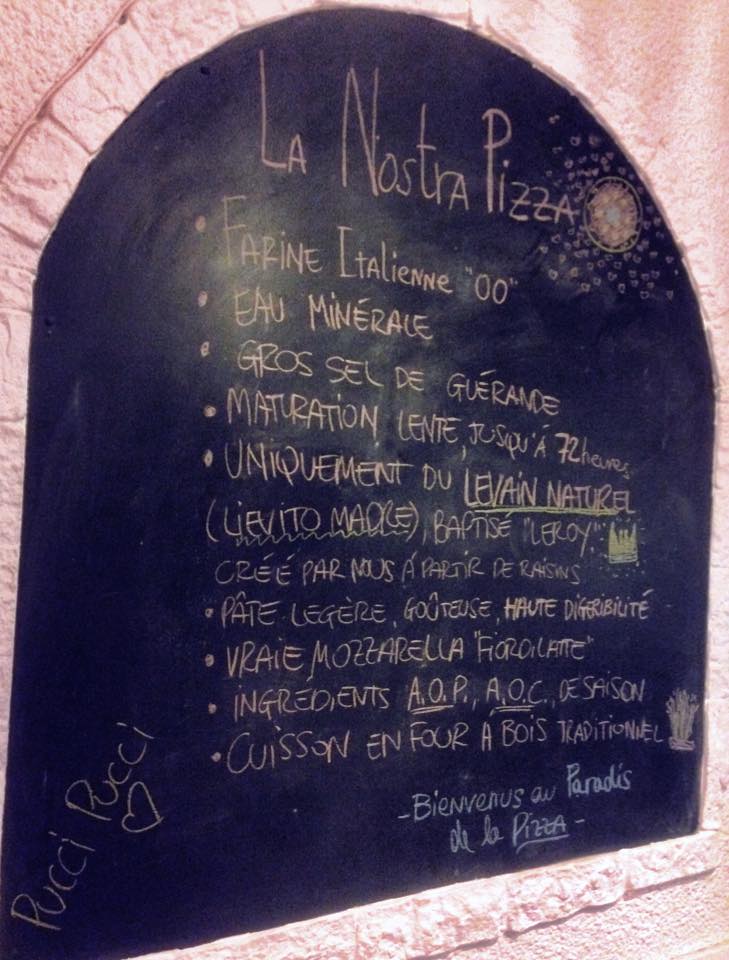 La Nostra Pizza
• Farine Italienne "00"
• EAU MINÉRALE
• GROS SEL DE GUÉRANDE
• MATURATION LENTE, JUSQU'À 72 heures
• UNIQUEMENT DU LEVAIN NATUREL
(LIEVITO MADRE), BAPTISÉ "LEROY"
CRÉÉ PAR NOUS À PARTIR DE RAISINS
• PÂTE LEGÈRE, GOÛTEUSE, HAUTE DIGERIBILITÉ
• VRAIE MOZZARELLA "FIORDILATTE"
• INGREDIENTS A.O.P., A.O.C., DE SAISON
• CUISSON EN FOUR À BOIS TRADITIONNEL
- Bienvenus au Paradis
de la Pizza -
Pucci Pucci